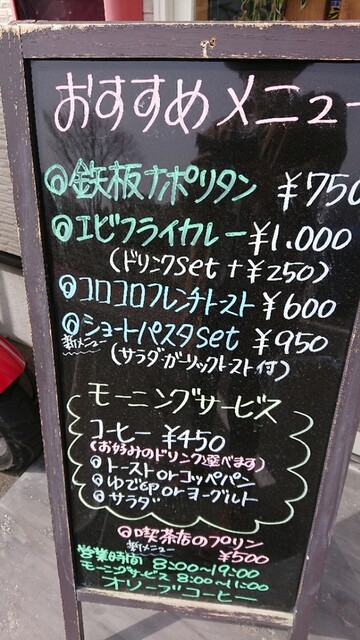 おすすめメニュー
鉄板ナポリタン ¥750
エビフライカレー ¥1.000
(ドリンクset +¥250)
コロコロフレンチトースト ¥600
ショートパスタset ¥950
新メニュー (サラダ・ガーリックトースト付)
モーニングサービス
コーヒー ¥450
(お好みのドリンク選べます)
トーストorコッペパン
ゆで卵orヨーグルト
サラダ
喫茶店のプリン
新メニュー ¥500
営業時間 8:00~19:00
モーニングサービス 8:00~11:00
オリーブコーヒー